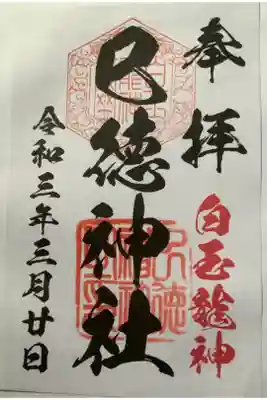 奉拝
白玉龍神
巳徳神社
令和三年三月廿日